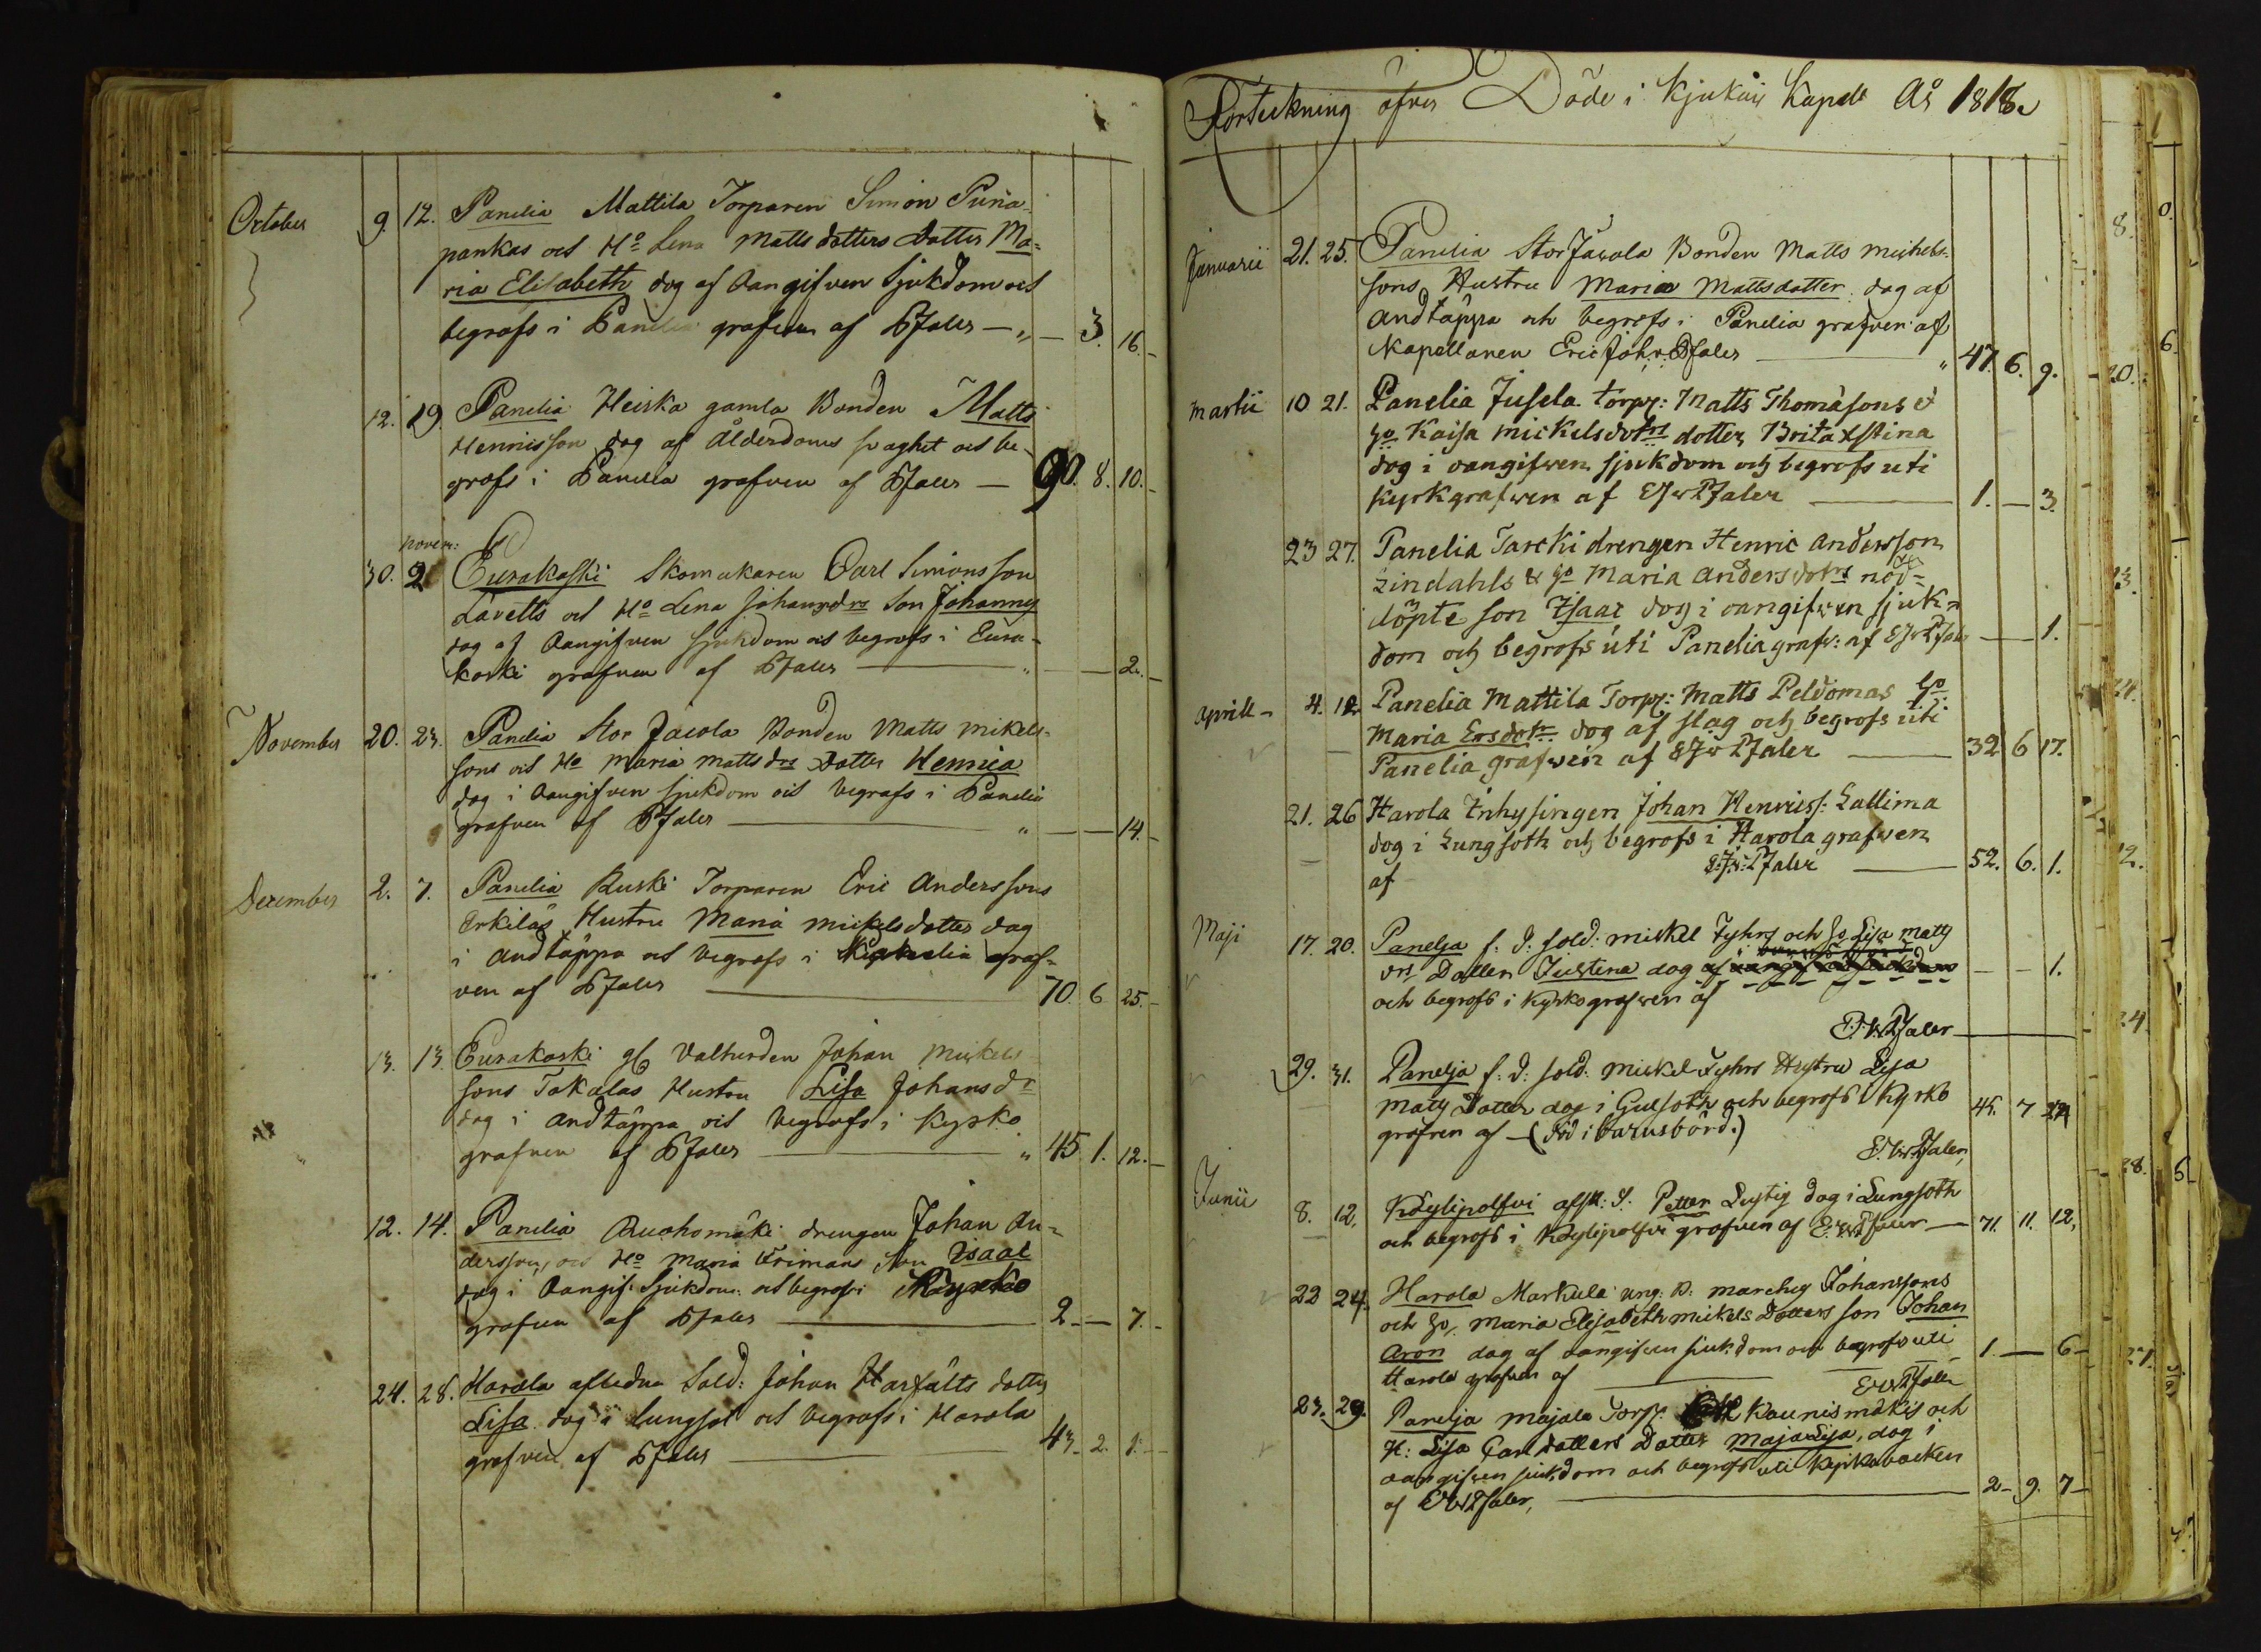 October 9. 12. Panelia Mattila Torparen Simon Puna-
pankas och Ho Lena Matts dotters Dotter Ma=
ria Elisabeth dog af Oangifven Sjukdom och
begrofs i Panelia grafven af PJaler — " — 3. 16. —
12. 19. Panelia Heiska gamla Bonden Matts
Henricsson dog af ålderdoms svaghet och be-
grofs i Panelia grafven af PJaler — 90. 8. 10. —
Novem:
30. 2 Eurakoski Skomakaren Carl Simonsson
Lavetts och Ho Lena Johansdrs Son Johannes
dog af Oangifven Sjukdom och begrofs i Eura-
koski grafven af PJaler — " — — 2. —
November 20. 23. Panelia Stor Jacola Bonden Matts Mikels-
sons och Ho Maria Mattsdrs Dotter Henrica
dog i Oangifven sjukdom och begrofs i Panelia
grafven af PJaler — " — — 14. —
December 2. 7. Panelia Ruski Torparen Eric Anderssons
Erkiläs Hustru Maria Mickelsdotter dog
i Andtäppa och begrofs i Panelia graf=
ven af PJaler — 70. 6 25. —
13. 13. Eurakoski gl Vallherden Johan Mickels
sons Takalas Hustru Lisa Johansdr
dog i Andtäppa och begrofs i Kyrko
grafven af PJaler — " 45 1. 12. —
12. 14. Panelia Ruohomäki drengen Johan An=
derssons, och Ho Maria Frimans Son Isaac
dog i Oangif: Sjukdom: och begrofs i Kyrko
grafven af PJaler — 2 — 7. —
24. 28. Harola afledne Sold: Johan Harfälts dotter
Lisa dog i lungsot och begrofs i Harola
grafven af PJaler — 43. 2. 1. —
Förteckning öfver Döde i Kjukais Kapell År 1818.
Januarii 21. 25. Panelia Stor Jacola Bonden Matts Michels-
sons Hustru Maria Mattsdotter dog af
Andtäppa och begrofs i Panelia grafven af
Kapellanen Eric Joh: v: PJaler — " 47. 6. 9.
Martii 10 21. Panelia Jusela torp: Matts Thomasons &
Ho Kaisa Mickelsdotrs dotter Brita Xstina
dog i oangifwen sjukdom och begrofs uti
Kyrkgrafwen af EJvPJaler — 1. — 3.
23 27. Panelia Tarcki drengen Henric Andersson
Lindahls & Ho Maria Andersdotrs nöd=
döpte son Isaac dog i oangifwen sjuk=
dom och begrofs uti Panelia grafw: af EJvPJaler — — 1.
Aprill — 4. 12. Panelia Mattila Torp: Matts Peldomas Ho
Maria Ersdotr dog af slag och begrofs uti
Panelia grafwen af EJv PJaler — 32 6 17.
21. 26 Harola Inhysingen Johan Henrics: Lallima
dog i Lungsoth och begrofs i Harola grafwen
af E:J:v:PJaler — 52. 6. 1.
Maji 17. 20. Panelja f: d: sold: Mickel Fyhrs och Ho Lisa Matts
drs Dotter Justina dog af
och begrofs i Kyrko grafwen af — — 1.
E:J:v:PJaler —
29. 31. Panelja f: d: sold: Mickel Fyhrs Hustru Lisa
Matts Dotter dog i Gulsoth och begrofs i Kyrko
grafven af — (Död i barnsbörd.) 45. 7
E:J:v:PJaler,
Junii 8. 12. Köylipolfvi afsk: S. Petter Lustig dog i Lungsoth
och begrofs i Köylipolfvi grafven af E:J:v:PJaler — 71. 11. 12,
22 24. Harola Markula ung: B: Marcheg Johanssons
och Ho, Maria Elisabeth Mickels Dotters son Johan
Aron dog af oangifven sjukdom och begrofs uti 1. — 6 —
Harola grafven af — EJvPJaler
23. 29. Panelja Majala Torp. Kaunismäkis och
H: Lisa Carl dotters Dotter Maja Lisa, dog i
oangifven sjukdom och begrofs uti Kyrkobacken
af EJvPJaler, — 2 — 9. 7 —